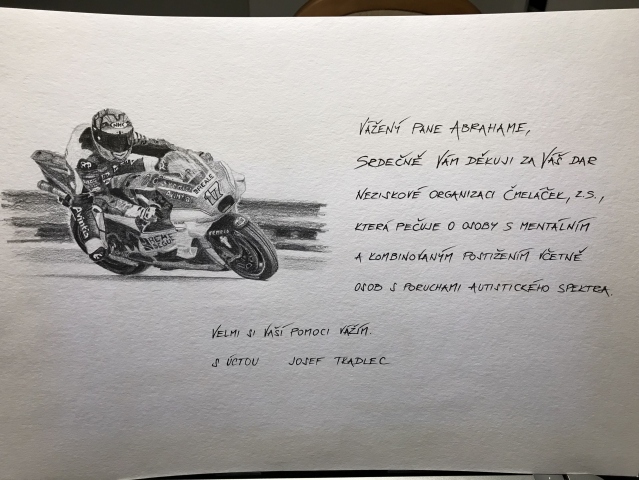 VÁŽENÝ PANE ABRAHAME,
SRDEČNĚ VÁM DĚKUJI ZA VÁŠ DAR
NEZISKOVÉ ORGANIZACI ČMELÁČEK, Z.S.,
KTERÁ PEČUJE O OSOBY S MENTÁLNÍM
A KOMBINOVANÝM POSTIŽENÍM VČETNĚ
OSOB S PORUCHAMI AUTISTICKÉHO SPEKTRA.
VELMI SI VAŠÍ POMOCI VÁŽÍM.
S ÚCTOU JOSEF TKADLEC
17